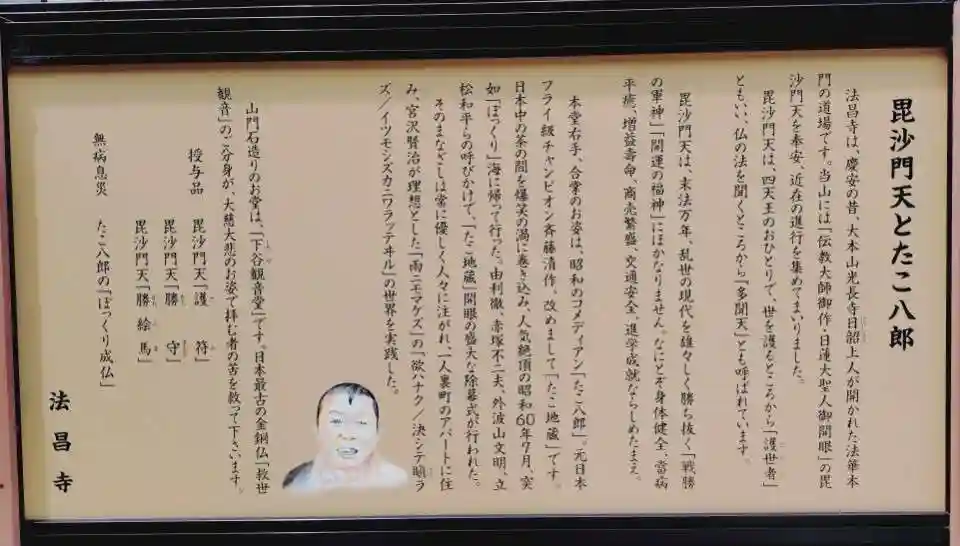 毘沙門天とたこ八郎
法昌寺は、慶安の昔、大本山光長寺日韶上人が開かれた法華本
門の道場です。当山には「伝教大師御作・日蓮大聖人御開眼」の毘
沙門天を奉安、近在の進行を集めてまいりました。
毘沙門天は、四天王のおひとりで、世を護るところから「護世者」
ともいい、仏の法を聞くところから「多聞天」とも呼ばれています。
毘沙門天は、末法万年、乱世の現代を雄々しく勝ち抜く「戦勝
の軍神」「開運の福神」にほかなりません。なにとぞ身体健全、當病
平癒、増益壽命、商売繁盛、交通安全、進学成就ならしめたまえ。
本堂右手、合掌のお姿は、昭和のコメディアン「たこ八郎」。元日本
フライ級チャンピオン斉藤清作、改めまして「たこ地蔵」です。
日本中の茶の間を爆笑の渦に巻き込み、人気絶頂の昭和60年7月、突
如「ぽっくり」海に帰って行った。由利徹、赤塚不二夫、外波山文明、立
松和平らの呼びかけで、「たこ地蔵」開眼の盛大な除幕式が行われた。
そのまなざしは常に優しく人々に注がれ、一人裏町のアパートに住
み、宮沢賢治が理想とした「雨ニモマケズ」の「欲ハナク／決シテ瞋ラ
ズ／イツモシズカニワラッテヰル」の世界を実践した。
山門石造りのお堂は、「下谷観音堂」です。日本最古の金銅仏「救世
観音」のご分身が、大慈大悲のお姿で拝む者の苦を救って下さいます。
授与品 毘沙門天「護符」
毘沙門天「勝守」
毘沙門天「勝絵馬」
無病息災 たこ八郎の「ぽっくり成仏」
法昌寺